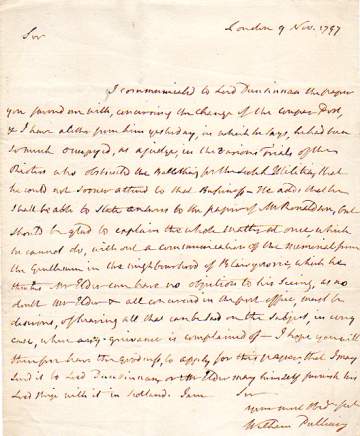 London 9 Nov. 1797
Sir
I communicated to Lord Dunsinnan the paper
you favored me with, concerning the change of the Coupar Post,
& I have a letter from him yesterday, in which he says, he had been
so much occupied, as a Judge, in the various Trials of the
Rioters who obstructed the Ballotting for the Scotch Militia, that
he could not sooner attend to that Business – He adds that he
shall be able to State answers to the paper of Mr Ronaldson, but
should be glad to explain the whole matter at once which
he cannot do, without a communication of the Memorial from
the Gentlemen in the neighbourhood of Blairgowrie, which he
thinks Mr Elder can have no objection to his seeing, as no
doubt Mr Elder & all concerned in the post office, must be
desirous, of hearing all that can be said on the Subject, in every
case, where any grievance is complained of – I hope you will
therefore have the goodness, to apply for this paper, that I may
send it to Lord Dunsinnan, or Mr Elder may himself furnish his
Lordship with it in Scotland. I am
Sir
your most Obed
William Pulteney